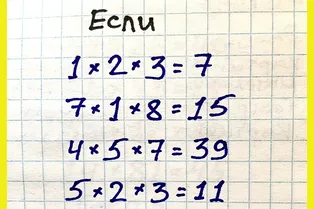 Если
1 * 2 * 3 = 7
7 * 1 * 8 = 15
4 * 5 * 7 = 39
5 * 2 * 3 = 11